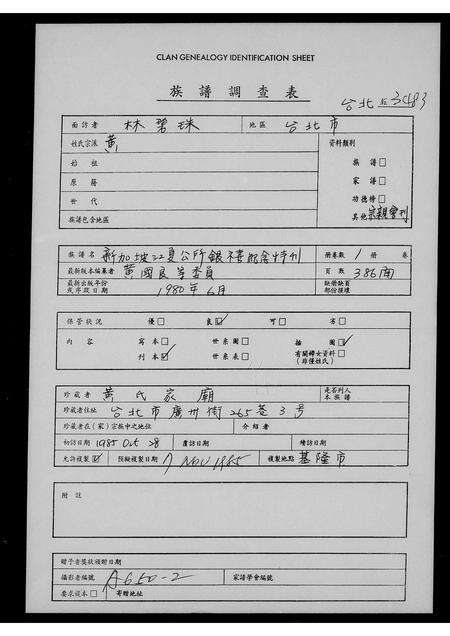 CLAN GENEALOGY IDENTIFICATION SHEET
族譜調查表
台北 3483
面訪者 林碧珠 地區 台北市
姓氏宗派 黃 資料類別
始祖 族譜□
原籍 家譜□
世代 功德榜□
族譜包含地區 其他 宗親會刊
族譜名 新加坡江夏公所銀禧紀念特刊 冊卷數 1 冊 卷
最新版本編纂者 黃國良等委員 頁數 386面
最新出版年份或序跋日期 1980年6月 缺冊缺頁部份損壞
保管狀況 優□ 良☑ 可□ 劣□
內容 寫本□ 世系圖□ 插圖☑
刊本☑ 世系表□ 有關婦女資料□ (非僅姓氏)
珍藏者 黃氏家廟 是否列入本族譜
珍藏者住址 台北市廣州街265巷3號
珍藏者在(家)宗族中之地位 介紹者
初訪日期 1985 Oct 28 覆訪日期 續訪日期
允許複製☑ 預擬複製日期 7 NOV 1985 複製地點 基隆市
附註
贈予者獎狀致贈日期
攝影者編號 A650-2 家譜學會編號
要求複本□ 寄贈地址